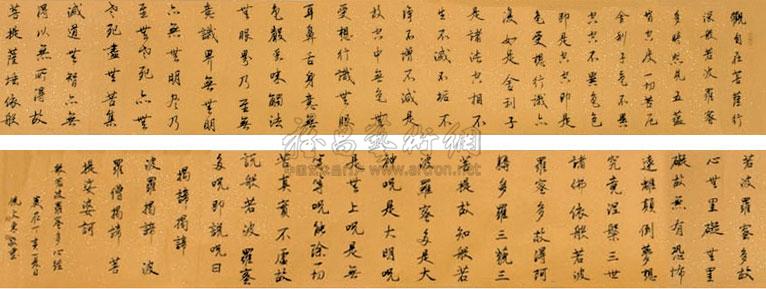 觀自在菩薩行
深般若波羅蜜
多時照見五蘊
皆空度一切苦厄
舍利子色不異
空空不異色色
即是空空即是
色受想行識亦
復如是舍利子
是諸法空相不
生不滅不垢不
淨不增不減是
故空中無色無
受想行識無眼
耳鼻舌身意無
色聲香味觸法
無眼界乃至無
意識界無無明
亦無無明盡乃
至無老死亦無
老死盡無苦集
滅道無智亦無
得以無所得故
菩提薩埵依般
若波羅蜜多故
心無罣礙無罣
礙故無有恐怖
遠離顛倒夢想
究竟涅槃三世
諸佛依般若波
羅蜜多故得阿
耨多羅三藐三
菩提故知般若
波羅蜜多是大
神咒是大明咒
是無上咒是無
等等咒能除一切
苦真實不虛故
說般若波羅蜜
多咒即說咒曰
揭諦揭諦
波羅揭諦波
羅僧揭諦菩
提娑婆訶
般若波羅蜜多心經
歲在丁亥夏日
雅昌藝術網
www.artron.net